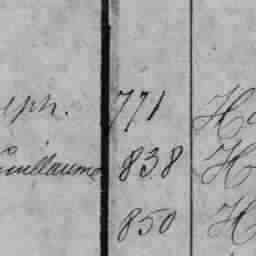 eph. 771 H
Guillaume 838 H
850 H